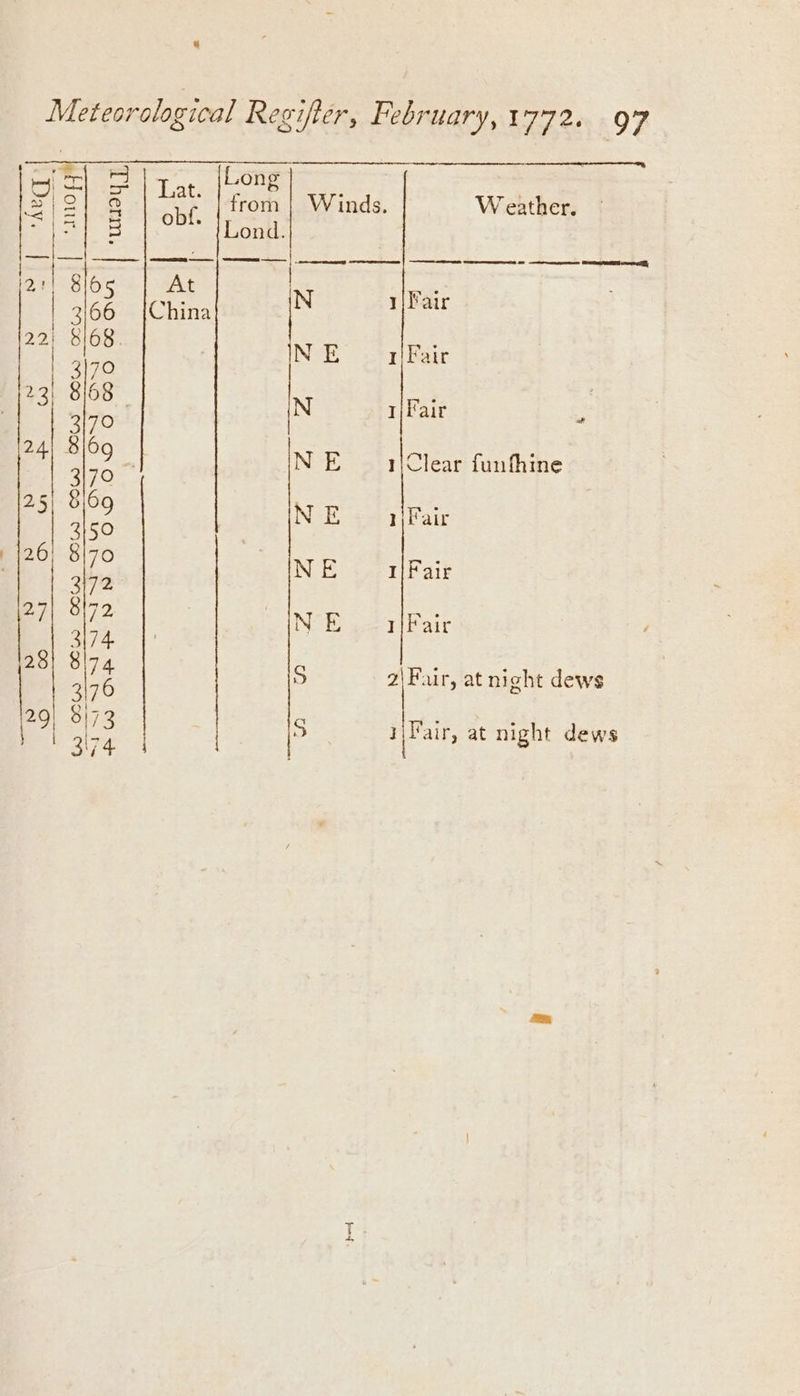 Meteorological Regiſter, February, 1772. 97
Day. | Hour. | Therm. | Lat. obſ. | Long from Lond. | Winds. | Weather.
21 | 8 | 65 | At
3 | 66 | China | N 1 | Fair
22 | 8 | 68
3 | 70 | N E 1 | Fair
23 | 8 | 68
3 | 70 | N 1 | Fair
24 | 8 | 69
3 | 70 | N E 1 | Clear ſunſhine
25 | 8 | 69
3 | 50 | N E 1 | Fair
26 | 8 | 70
3 | 72 | N E 1 | Fair
27 | 8 | 72
3 | 74 | N E 1 | Fair
28 | 8 | 74
3 | 76 | S 2 | Fair, at night dews
29 | 8 | 73
3 | 74 | S 1 | Fair, at night dews
I